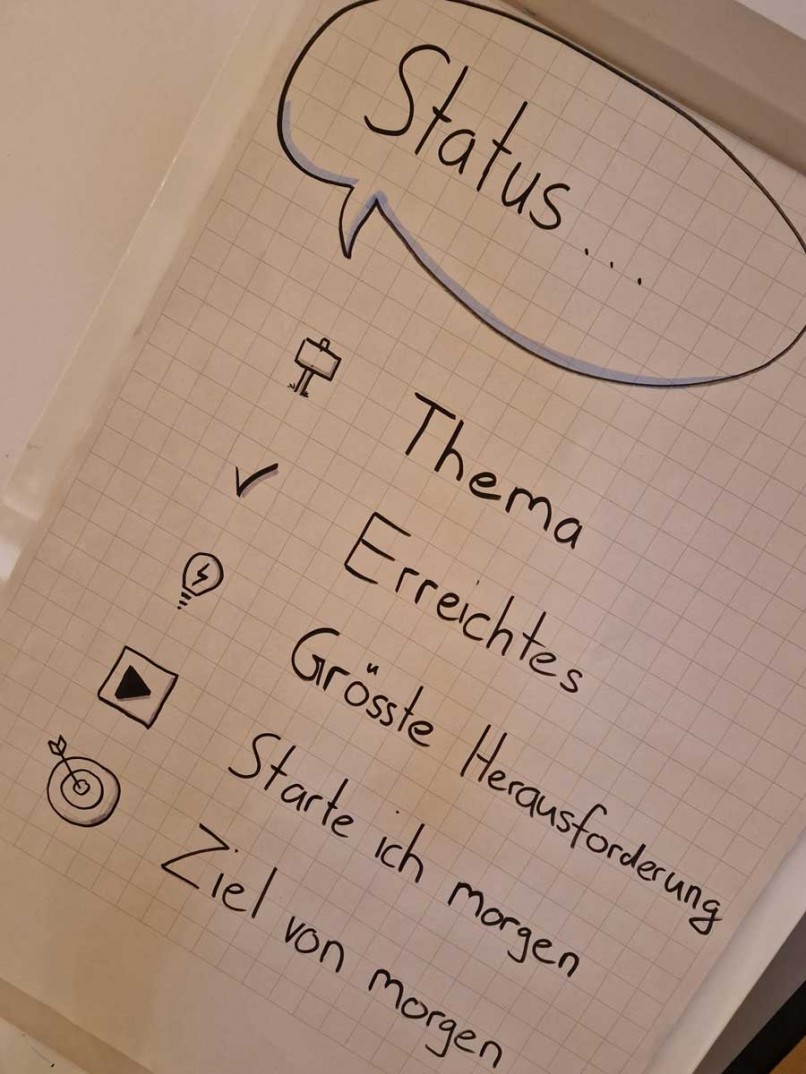 Status...
Thema
Erreichtes
Grösste Herausforderung
Starte ich morgen
Ziel von morgen